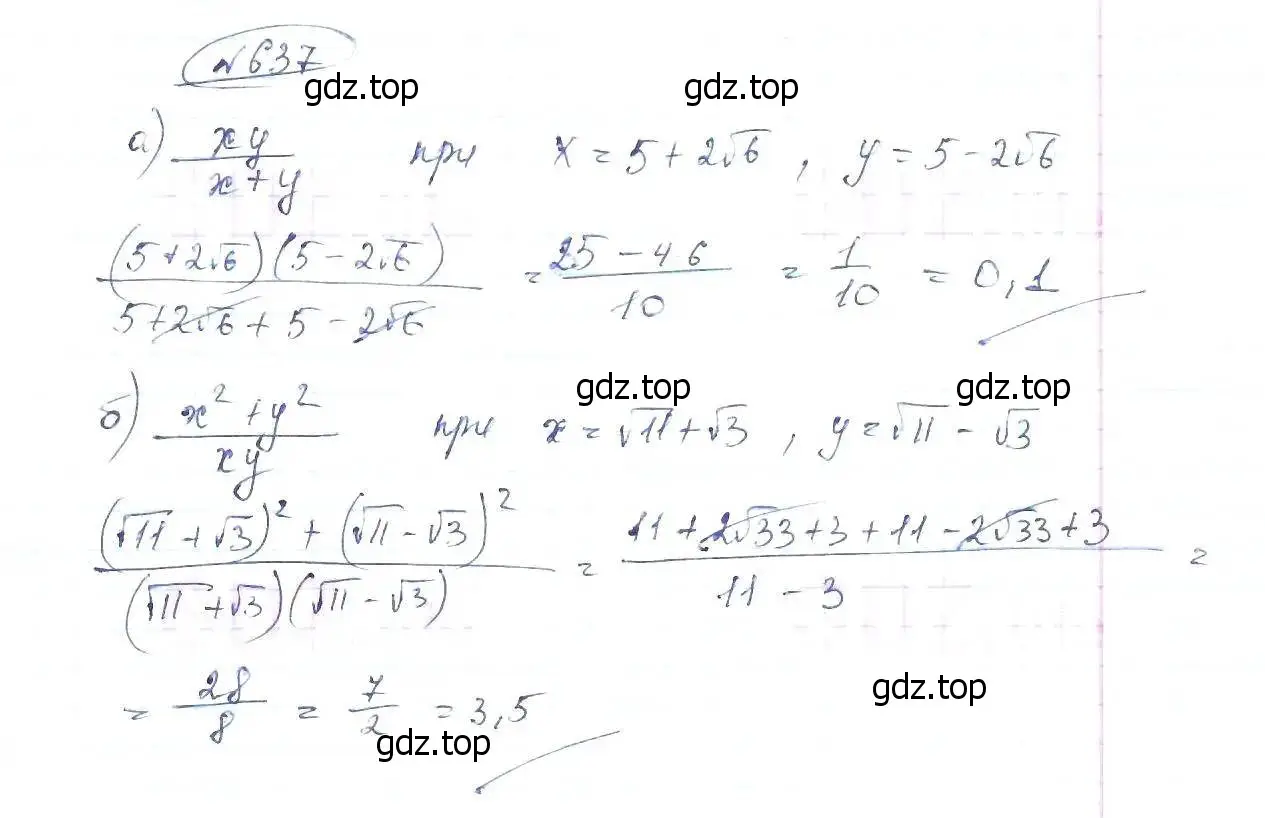 №637
gdz.top gdz.top
а) xy/(x+y) при x = 5 + 2√6 , y = 5 - 2√6
(5+2√6)(5-2√6)/(5+2√6+5-2√6) = (25-4·6)/10 = 1/10 = 0,1
gdz.top gdz.top
б) (x²+y²)/(xy) при x = √11+√3 , y = √11 - √3
((√11+√3)²+(√11-√3)²)/((√11+√3)(√11-√3)) = (11+2√33+3+11-2√33+3)/(11-3) =
gdz.top
= 28/8 = 7/2 = 3,5
gdz.top